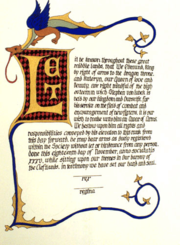 Let
it be known throughout these great
middle lands, that We Phoenix, King
by right of arms to the Dragon throne,
and Raterran, our Queen of love and
beauty, are right mindful of the high
esteem in which Stephen van is
held by our kingdom and barony, for
his service on the field of combat and
encouragement of new fighters. It is our
wish to make unto him an Award of Arms.
We bestow upon him all rights and
responsibilities conveyed by his elevation to this rank. from
this day forward, he may bear arms as duly registered
within the Society without let or hindrance from any person.
Done this eighteenth day of November, anno societatis
xxxv, while sitting upon our thrones in our barony of
the Cleftlands. In testimony we have set our hand and seal.
rex
regina